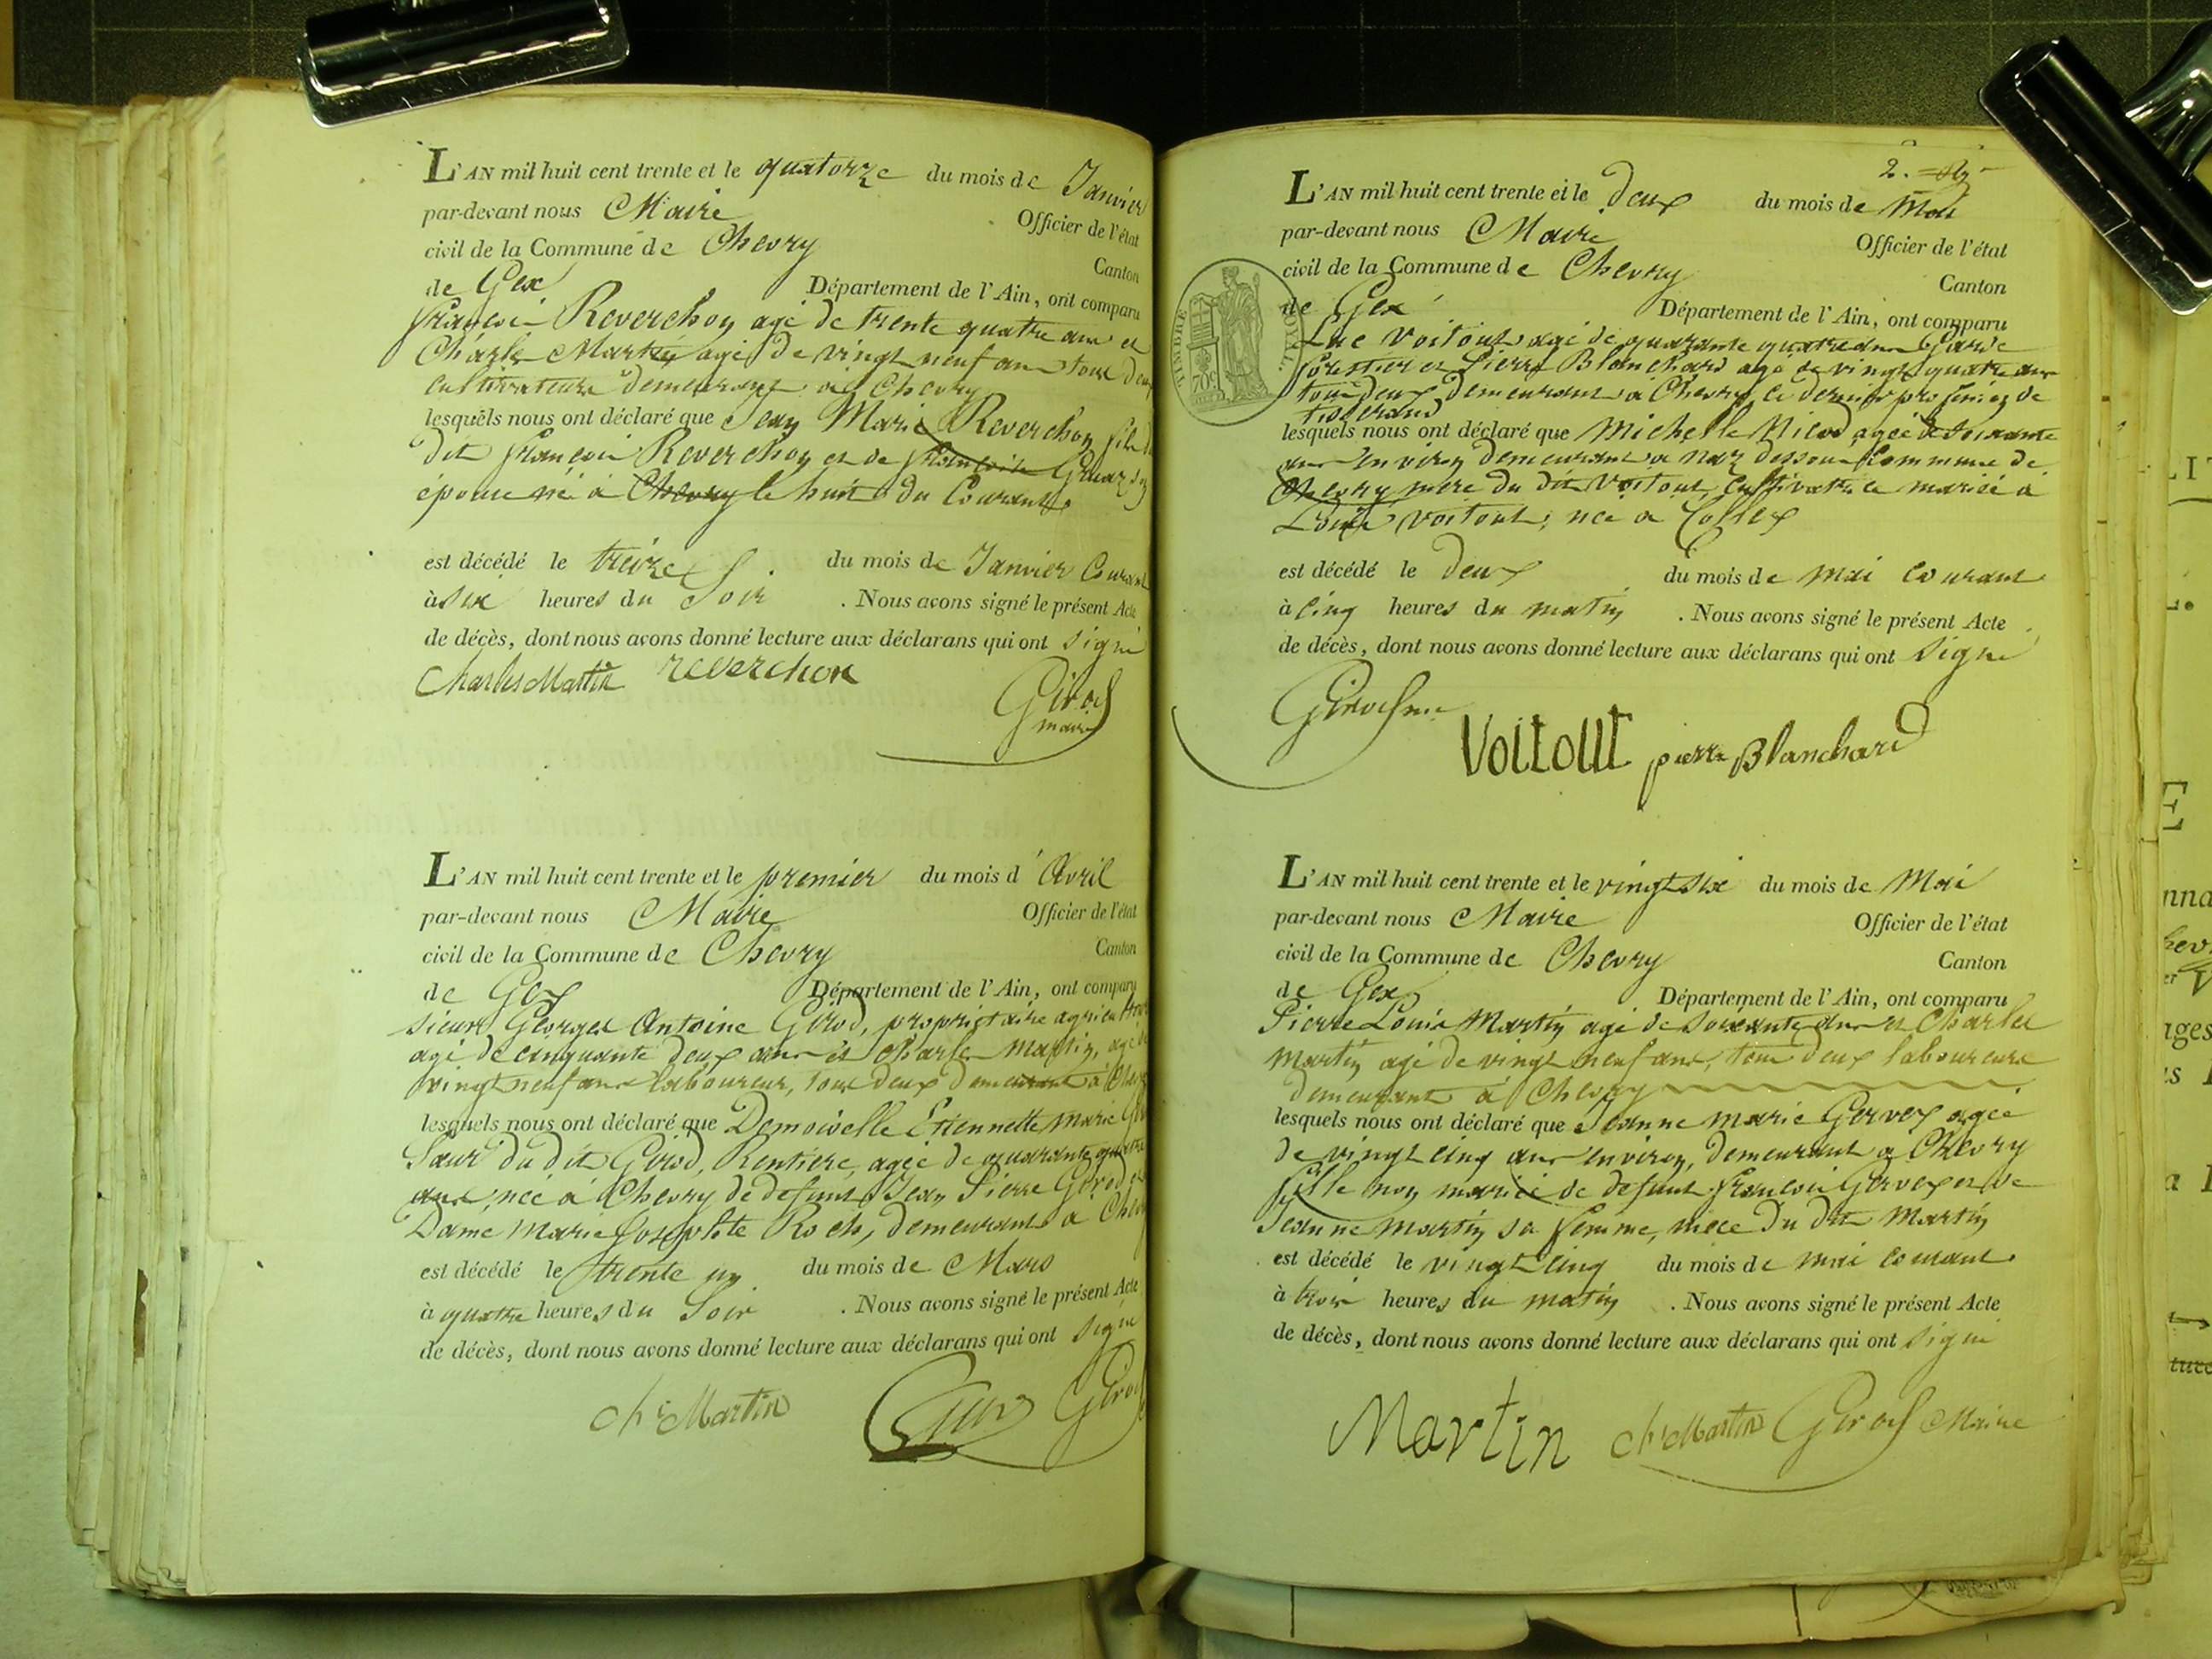 L'AN mil huit cent trente et le quatorze du mois de Janvier
par-devant nous Maire Officier de l'état
civil de la Commune de Chevry Canton
de Gex Département de l'Ain, ont comparu
françois Reverchon agé de trente quatre ans et
Charles Martin agé de vingt neuf ans tous deux
cultivateurs demeurant à Chevry
lesquels nous ont déclaré que Jean Marie Reverchon fils du
dit françois Reverchon et de françoise
épouse né à Chevry le huit du Courant
est décédé le treize du mois de Janvier Courant
à six heures du Soir . Nous avons signé le présent Acte
de décès, dont nous avons donné lecture aux déclarans qui ont signé
Charles Martin reverchon
Girod
maire
L'AN mil huit cent trente et le premier du mois d'Avril
par-devant nous Maire Officier de l'état
civil de la Commune de Chevry Canton
de Gex Département de l'Ain, ont comparu
sieurs Georges Antoine Girod, propriétaire
agé de cinquante deux ans et Charles Martin, agé de
vingt neuf ans laboureur, tous deux demeurant à
lesquels nous ont déclaré que Demoiselle Etiennette Marie
Sœur du dit Girod, Rentière, agée de quarante quatre
ans, née à Chevry de defunt Jean Pierre Girod et
Dame Marie Josephte Roch, demeurant à
est décédé le trente un du mois de Mars
à quatre heures du Soir . Nous avons signé le présent Acte
de décès, dont nous avons donné lecture aux déclarans qui ont signé
chs Martin Girod
2.
L'AN mil huit cent trente et le deux du mois de Mai
par-devant nous Maire Officier de l'état
civil de la Commune de Chevry Canton
de Gex Département de l'Ain, ont comparu
TIMBRE ROYAL
70c
Luc Voitout agé de quarante quatre ans Garde
forestier et Pierre Blanchard agé de vingt quatre ans
tous deux demeurant à Chevry le dernier profession de
tisserand
lesquels nous ont déclaré que Michelle Nicod agée de soixante
ans environ demeurant à Naz dessous Commune de
Chevry mère du dit Voitout, cultivatrice mariée à
Louis Voitout; née à Collex
est décédé le deux du mois de mai courant
à cinq heures du matin . Nous avons signé le présent Acte
de décès, dont nous avons donné lecture aux déclarans qui ont signé
Girod
Voitout pierre Blanchard
L'AN mil huit cent trente et le vingt six du mois de Mai
par-devant nous Maire Officier de l'état
civil de la Commune de Chevry Canton
de Gex Département de l'Ain, ont comparu
Pierre Louis Martin agé de soixante ans et Charles
Martin agé de vingt neuf ans, tous deux laboureurs
demeurant à Chevry
lesquels nous ont déclaré que Jeanne Marie Gervex agée
de vingt cinq ans environ, demeurant à Chevry
fille non mariée de defunt françois Gervex et de
Jeanne Martin sa femme, niece du dit Martin
est décédé le vingt cinq du mois de mai courant
à trois heures du matin . Nous avons signé le présent Acte
de décès, dont nous avons donné lecture aux déclarans qui ont signé
Martin chs Martin Girod Maire